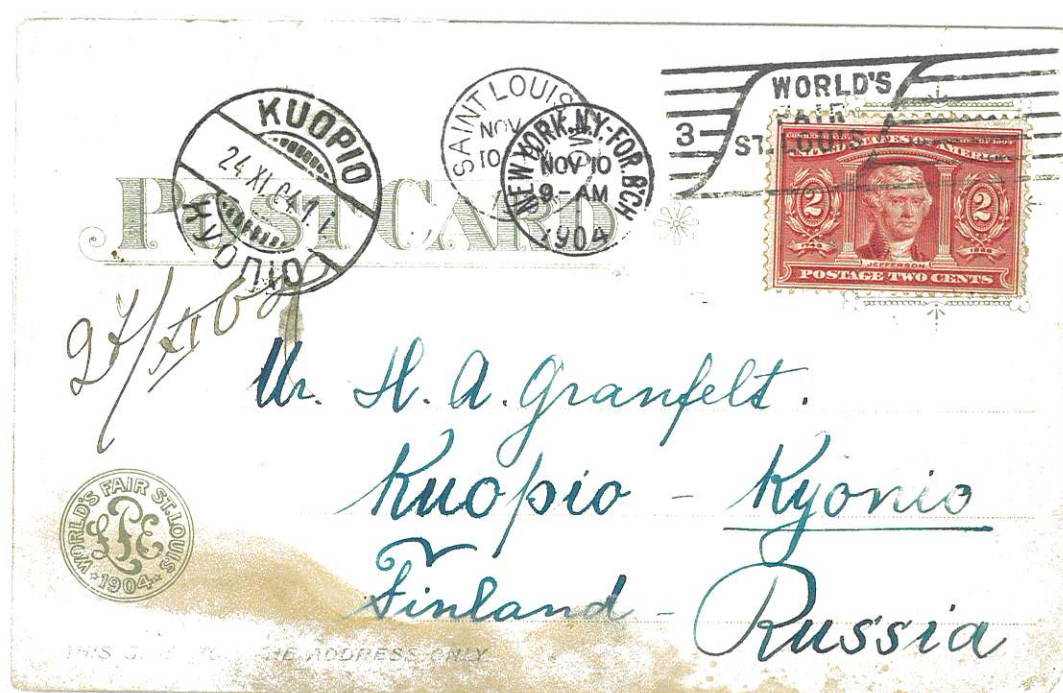 POST CARD
KUOPIO
24.XI.04 1 i.
Куопіо
SAINT LOUIS
NOV
10
NEW YORK, N.Y.-FOR. B'CH
NOV 10
9-AM
1904
3
WORLD'S
FAIR
ST. LOUIS
UNITED STATES OF AMERICA
2 2
JEFFERSON
POSTAGE TWO CENTS
27/XI
Mr. H. A. Granfelt.
Kuopio - Куопіо
Finland - Russia
WORLD'S FAIR ST. LOUIS
LPE
1904
THIS SIDE FOR THE ADDRESS ONLY